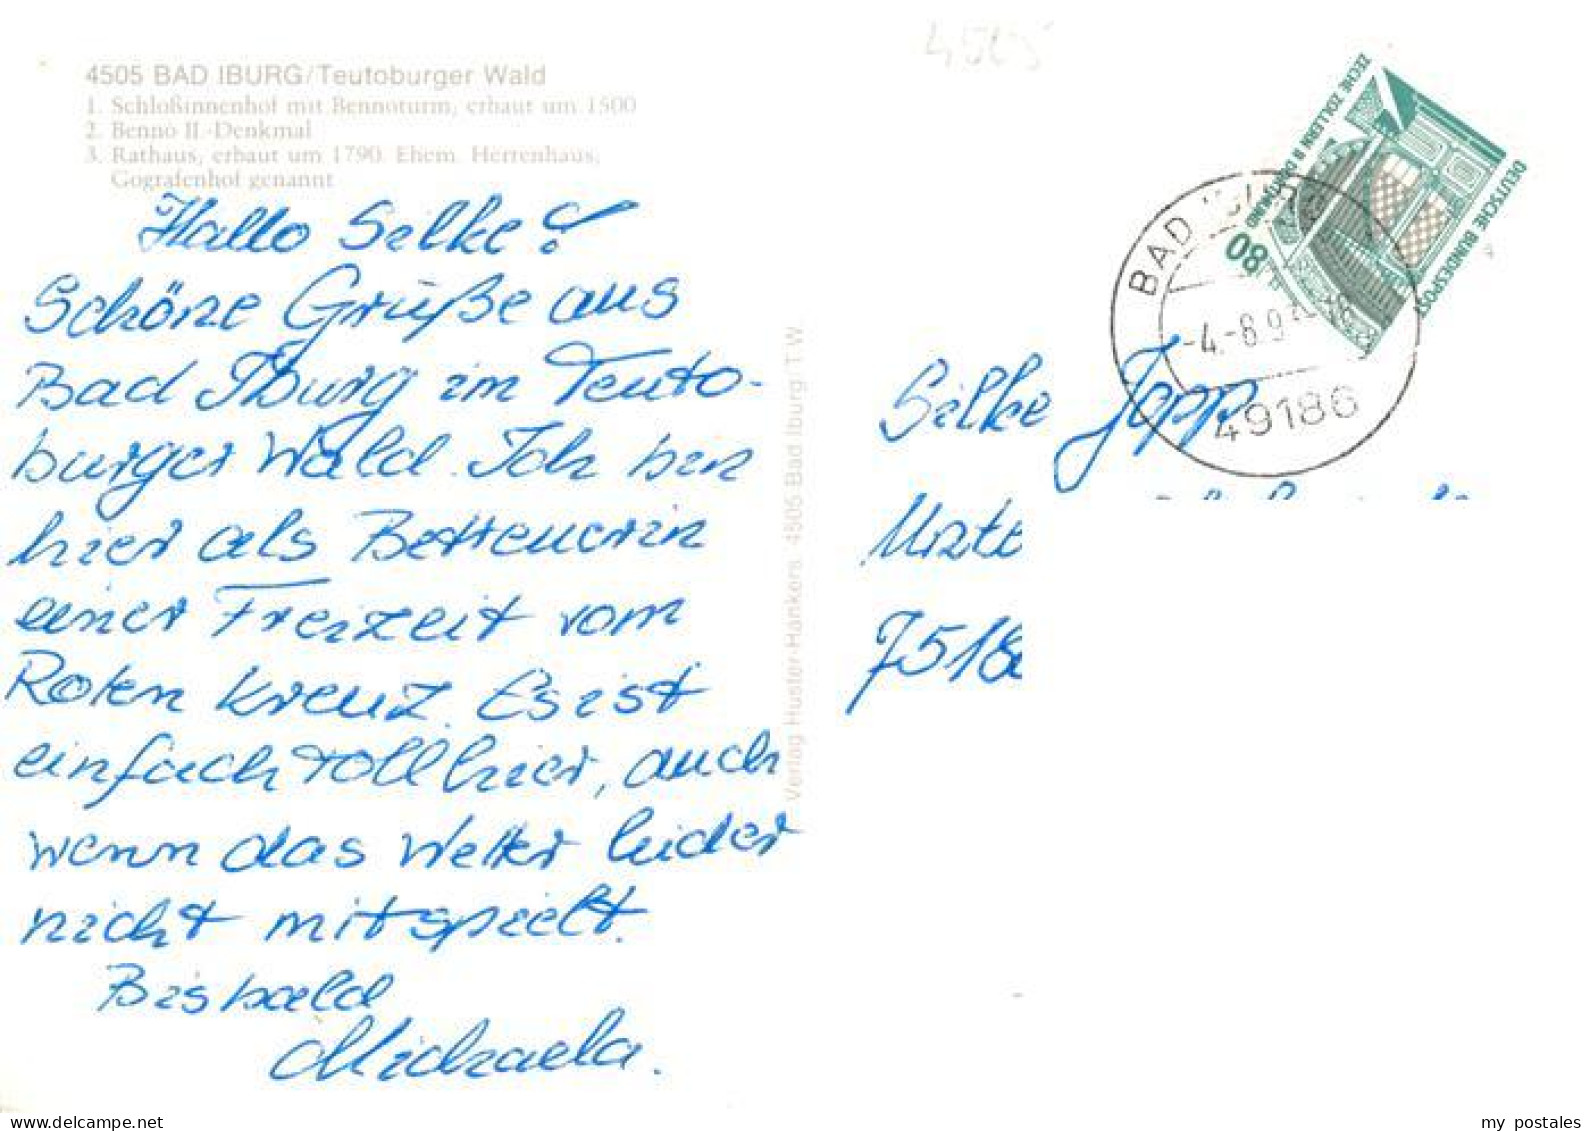 4505 BAD IBURG/Teutoburger Wald
1. Schloßinnenhof mit Bennoturm, erbaut um 1500
2. Benno II.-Denkmal
3. Rathaus, erbaut um 1790. Ehem. Herrenhaus,
Gografenhof genannt
Hallo Silke!
Schöne Grüße aus
Bad Iburg im Teuto-
burger Wald. Ich bin
hier als Betreuerin
einer Freizeit vom
Roten Kreuz. Es ist
einfach toll hier, auch
wenn das Wetter leider
nicht mitspielt.
Bis bald
Michaela.
Verlag Huster-Hankers 4505 Bad Iburg/T.W.
4505
ZECHE ZOLLERN II DORTMUND
80
DEUTSCHE BUNDESPOST
BAD IBURG
-4.-8.9
49186
Silke Jopp
7518
my postales